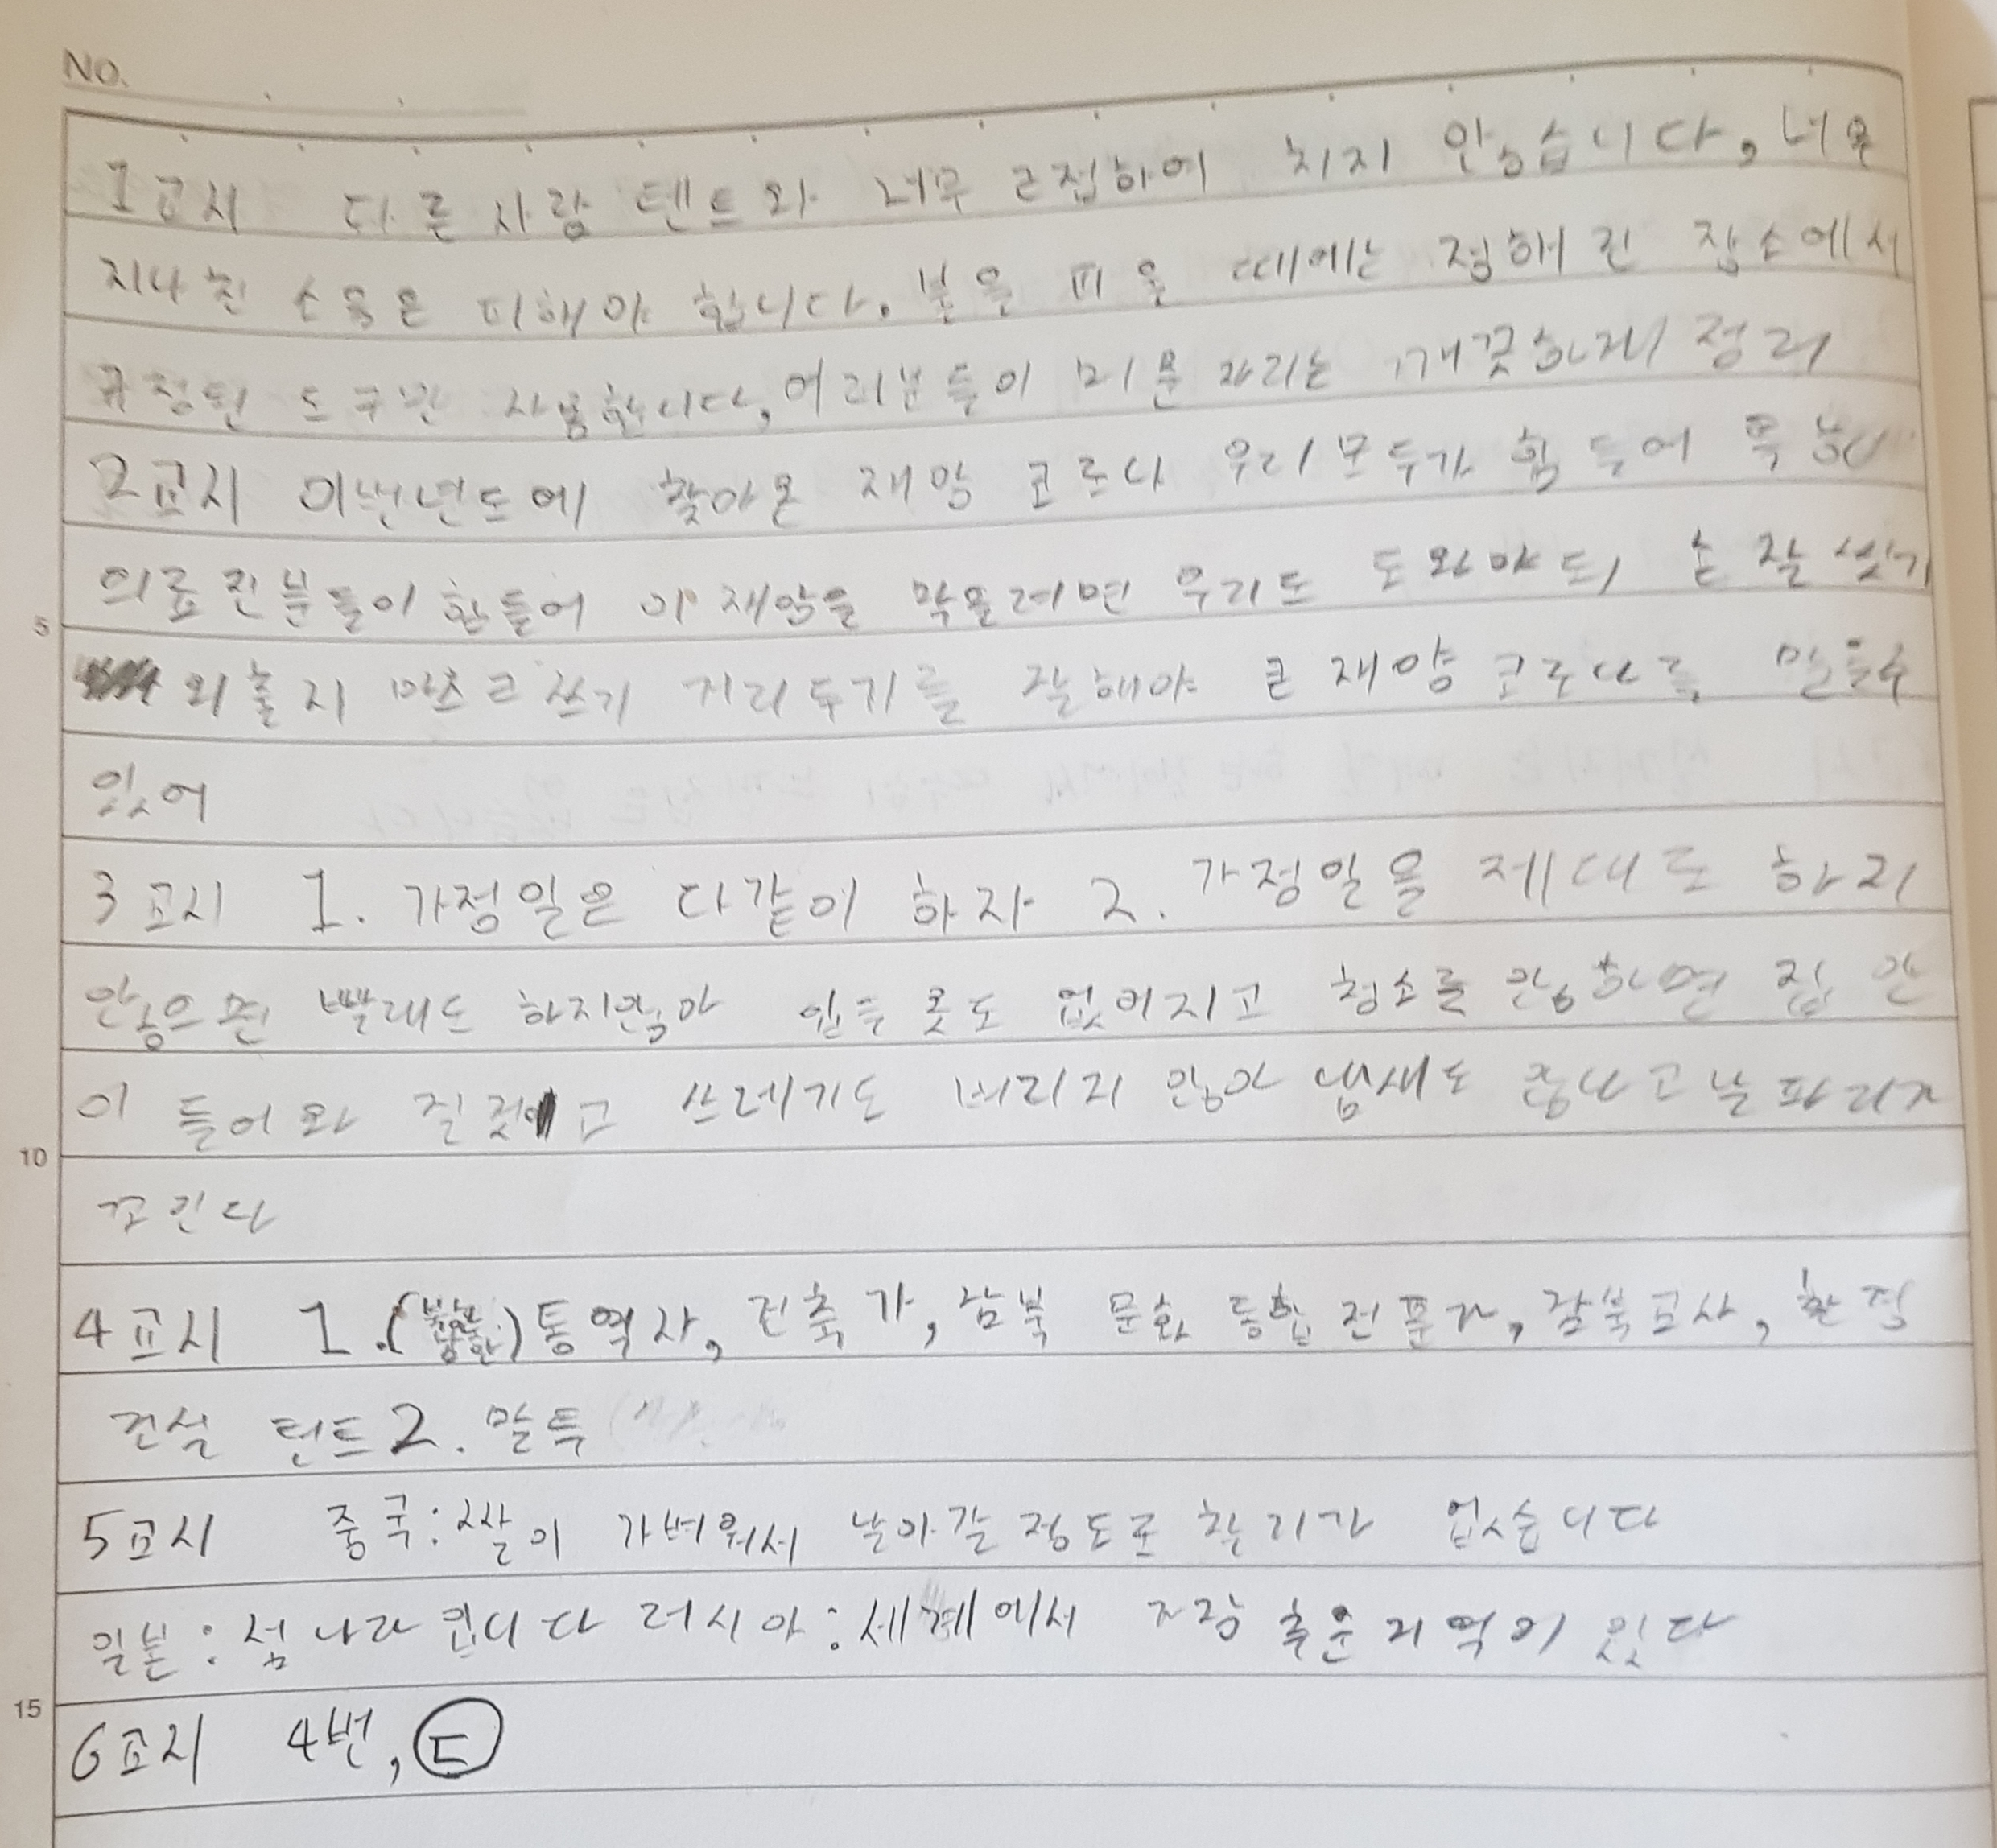 NO.
1교시 다른 사람 텐트와 너무 근접하여 치지 안습니다, 너무
지나친 소음은 피해야 합니다. 불을 피울 때에는 정해진 장소에서
규정된 도구만 사용합니다, 여러분들이 머문 자리는 깨끗하게 정리
2교시 이번년도에 찾아온 재앙 코로나 우리모두가 힘들어 특히
의료진분들이 힘들어 이 재앙을 막을려면 우리도 도와야되 손 잘 씻기
외출시 마스크쓰기 거리두기를 잘해야 큰 재앙 코로나를 막을수
있어
3교시 1. 가정일은 다같이 하자 2. 가정일을 제대로 하지
않으면 빨래도 하지않아 입을 옷도 없어지고 청소를 안하면 집 안
이 들어와 고 쓰레기도 버리지 않아 냄새도 나고 파리가
꼬인다
4교시 1.( ) 통역사, 건축가, 남북 문화 통합 전문가, 남북교사,
건설 2. 말투
5교시 중국: 쌀이 가벼워서 날아갈 정도로 찰기가 없습니다
일본: 섬나라입니다 러시아: 세계에서 가장 추운 지역이 있다
6교시 4번, ㄷ
5
10
15